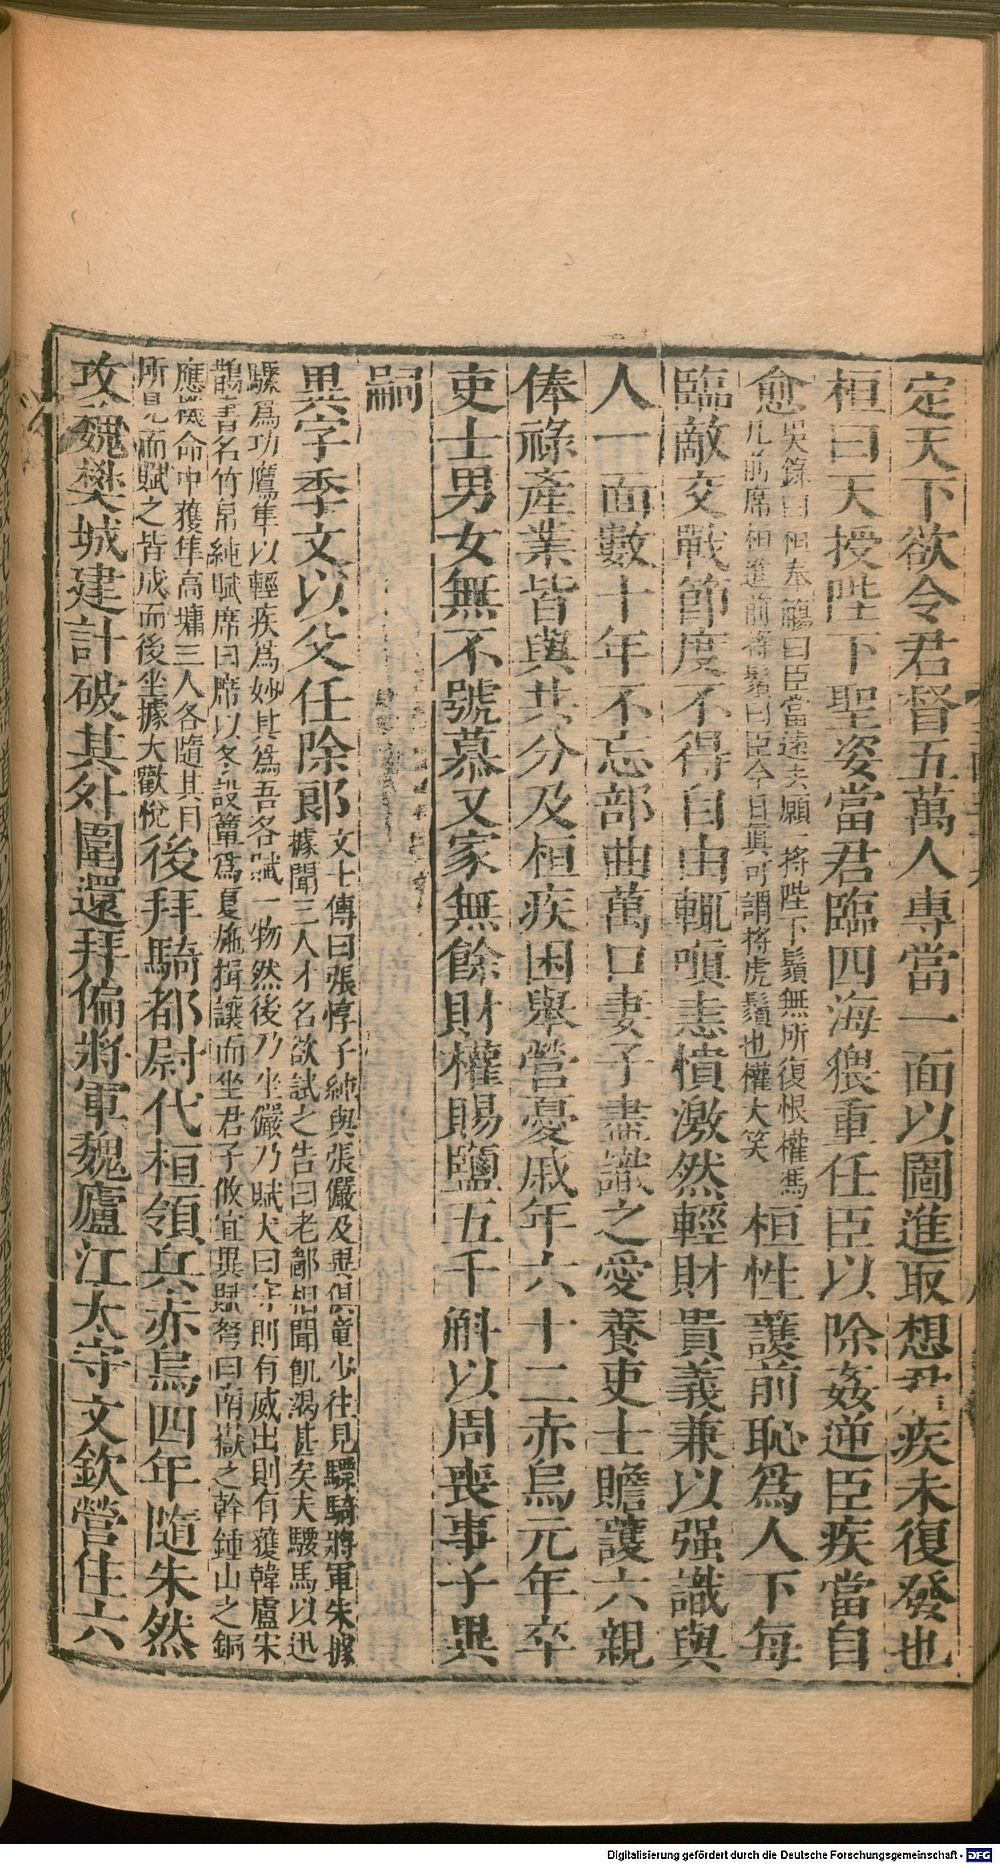 定天下欲令君督五萬人專當一面以圖進取想君疾未復發也
桓曰天授陛下聖姿當君臨四海猥重任臣以除姦逆臣疾當自
愈吳錄曰桓奉觴曰臣當遠去願一捋陛下鬚無所復恨權馮
几前席桓進前捋鬚曰臣今日真可謂捋虎鬚也權大笑桓性護前恥爲人下每
臨敵交戰節度不得自由輒嗔恚憤激然輕財貴義兼以强識與
人一面數十年不忘部曲萬口妻子盡識之愛養吏士贍護六親
俸祿產業皆與共分及桓疾困舉營憂戚年六十二赤烏元年卒
吏士男女無不號慕又家無餘財權賜鹽五千斛以周喪事子異
嗣
異字季文以父任除郎文士傳曰張惇子純與張儼及異俱童少往見驃騎將軍朱據
據聞三人才名欲試之告曰老鄙相聞飢渴甚矣夫騕馬以迅
驟爲功鷹隼以輕疾爲妙其爲吾各賦一物然後乃坐儼乃賦犬曰守則有威出則有獲韓盧宋
鵲書名竹帛純賦席曰席以冬設簟爲夏施揖讓而坐君子攸宜異賦弩曰南嶽之幹鍾山之銅
應機命中獲隼高墉三人各隨其目
所見而賦之皆成而後坐據大歡悅後拜騎都尉代桓領兵赤烏四年隨朱然
攻魏樊城建計破其外圍還拜偏將軍魏廬江太守文欽營住六
Digitalisierung gefördert durch die Deutsche Forschungsgemeinschaft - DFG